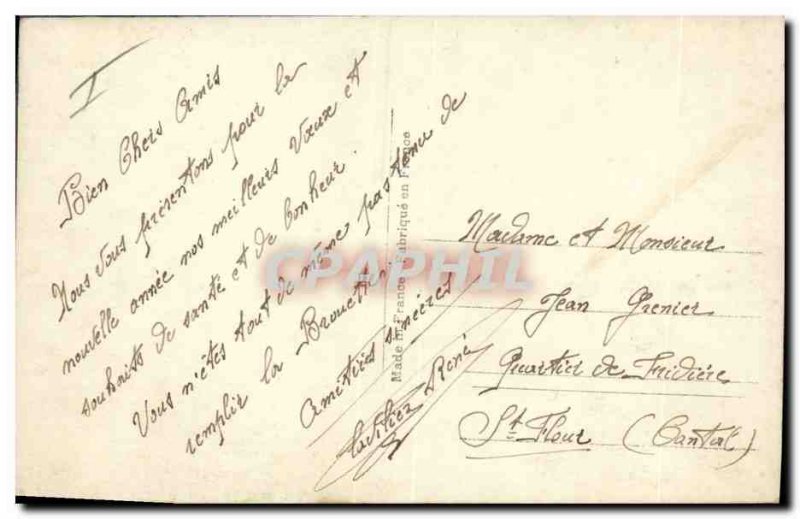 I
Bien Chers Amis
Nous Vous présentons pour la
nouvelle année nos meilleurs Vœux et
souhaits de santé et de bonheur.
Vous n'êtes tout de même pas tenu de
remplir la Brouette.
Amitiés sincères
René
Made in France - Fabriqué en France
Madame et Monsieur
Jean Grenier
Quartier de
St Flour (Cantal)
CPAPHIL